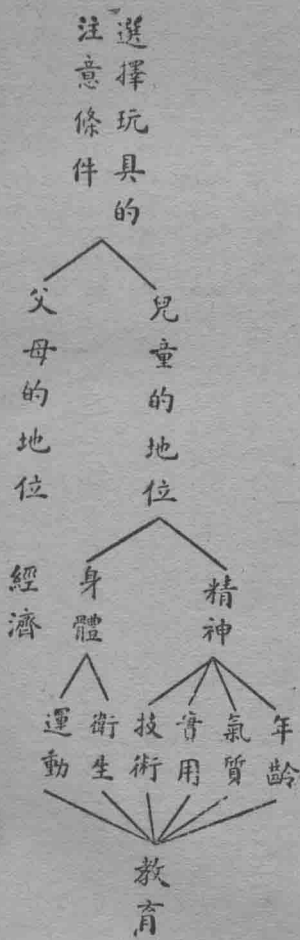 選擇玩具的
注意條件
兒童的地位
父母的地位
精神
身體
經濟
年齡
氣質
實用
技術
衛生
運動
教育